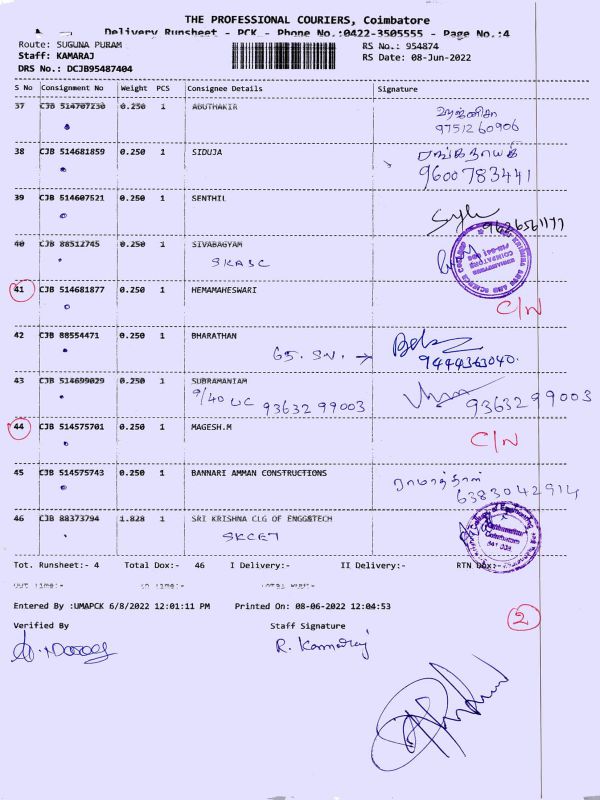 THE PROFESSIONAL COURIERS, Coimbatore
Delivery Runsheet - PCK - Phone No.:0422-3505555 - Page No.:4
Route: SUGUNA PURAM RS No.: 954874
Staff: KAMARAJ RS Date: 08-Jun-2022
DRS No.: DCJB95487404
S No Consignment No Weight PCS Consignee Details Signature
37 CJB 514707230 0.250 1 ABUTHAKIR
9751260906
38 CJB 514681859 0.250 1 SIDUJA
9600783441
39 CJB 514607521 0.250 1 SENTHIL
9626561177
40 CJB 88512745 0.250 1 SIVABAGYAM
SKASC
41 CJB 514681877 0.250 1 HEMAMAHESWARI
C/N
42 CJB 88554471 0.250 1 BHARATHAN
65. SN. →
9444363040.
43 CJB 514699029 0.250 1 SUBRAMANIAM
9/40 UC 93632 99003 93632 99003
44 CJB 514575701 0.250 1 MAGESH.M
C/N
45 CJB 514575743 0.250 1 BANNARI AMMAN CONSTRUCTIONS
ராமாத்தாள்
6383042914
46 CJB 88373794 1.828 1 SRI KRISHNA CLG OF ENGG&TECH
SKCET
Tot. Runsheet:- 4 Total Dox:- 46 I Delivery:- II Delivery:- RTN Dox:-
Out Time:- In Time:- Total Hour:-
Entered By :UMAPCK 6/8/2022 12:01:11 PM Printed On: 08-06-2022 12:04:53
2
Verified By Staff Signature
R. Kamaraj